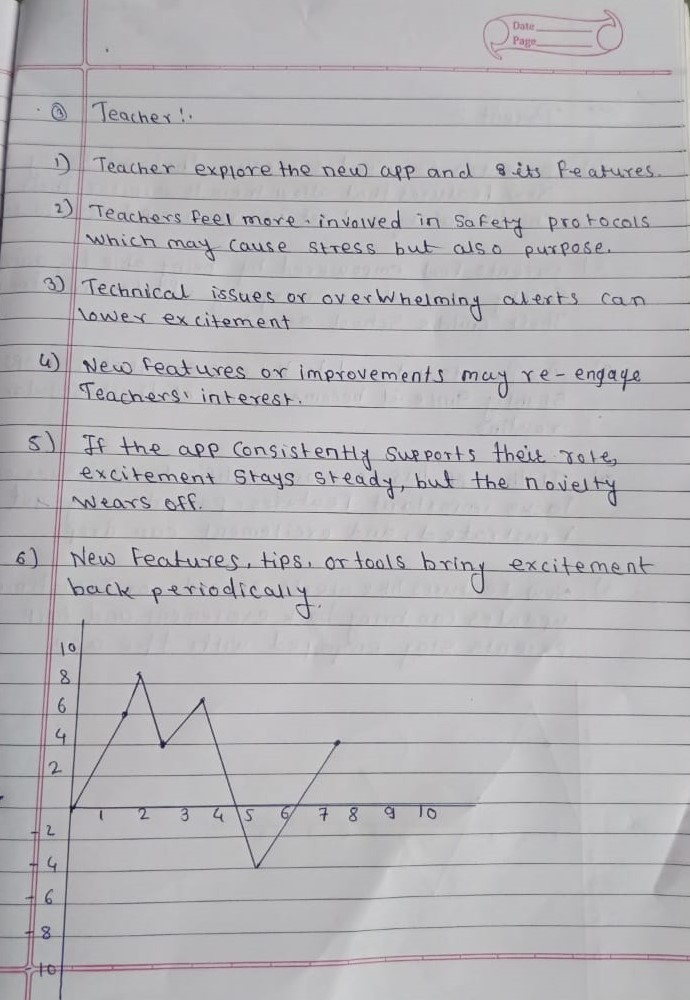 Date
Page
③ Teacher!.
1) Teacher explore the new app and its features.
2) Teachers feel more involved in safety protocols
which may cause stress but also purpose.
3) Technical issues or overwhelming alerts can
lower excitement
4) New features or improvements may re-engage
Teachers' interest.
5) If the app consistently supports their role,
excitement stays steady, but the novelty
wears off.
6) New features, tips, or tools bring excitement
back periodically.
10
8
6
4
2
1 2 3 4 5 6 7 8 9 10
-2
-4
-6
-8
-10